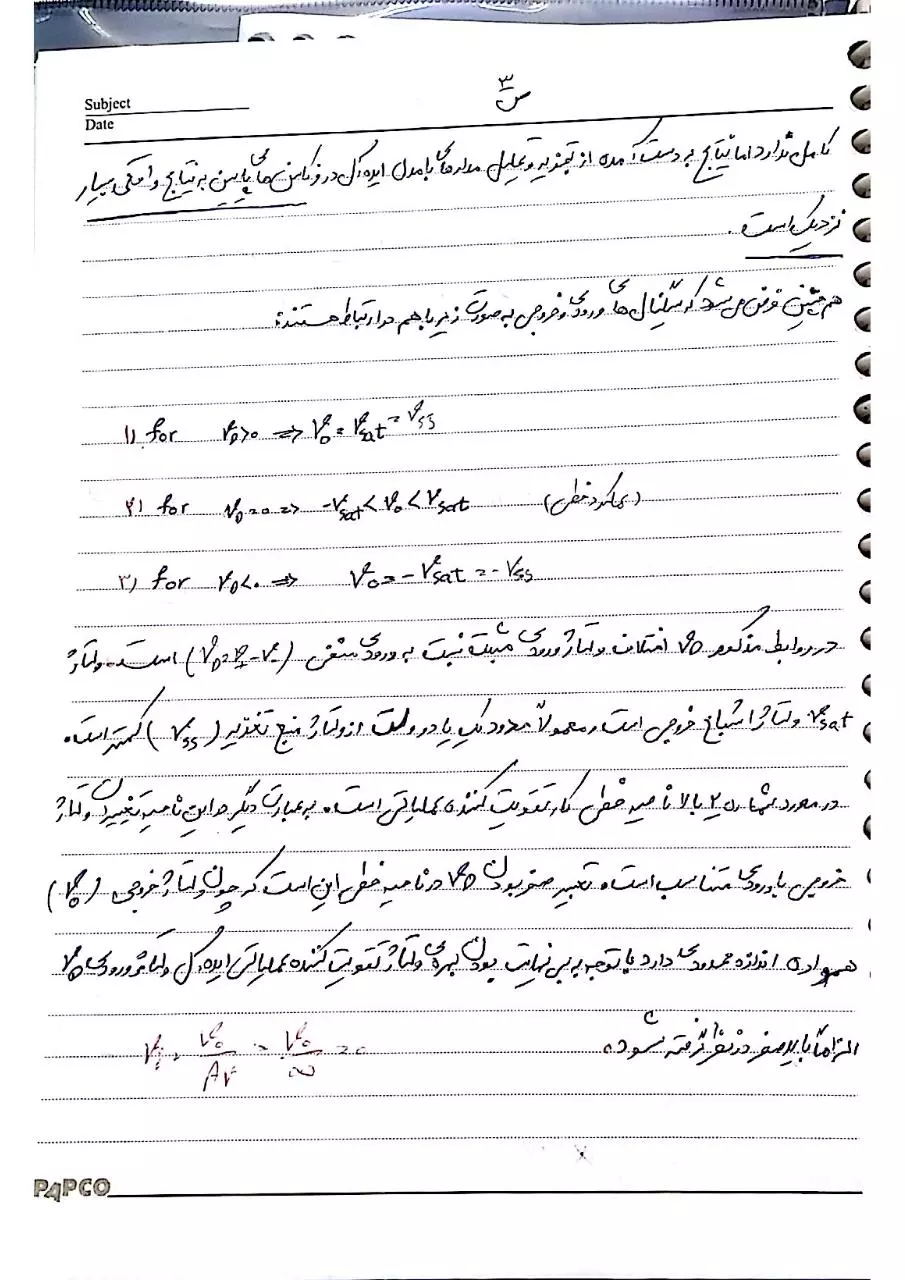 ص ۳
Subject
Date
کامل ندارد اما نتایج به دست آمده از تجزیه و تحلیل مدارهای با مدل ایده‌آل در فرکانس های پایین به نتایج واقعی بسیار
نزدیک است.
هم چنین فرض می شود که سیگنال های ورودی و خروجی به صورت زیر با هم در ارتباط هستند:
۱) for V_D>0 ⇒ V_o = V_sat = V_SS
۲) for V_D=0 ⇒ -V_sat < V_o < V_sat (عملکرد خطی)
۳) for V_D<0 ⇒ V_o = -V_sat = -V_SS
در روابط مذکور V_D اختلاف ولتاژ ورودی مثبت نسبت به ورودی منفی (V_D=V_+-V_-) است. ولتاژ
V_sat ولتاژ اشباع خروجی است و معمولاً حدود یک یا دو ولت از ولتاژ منبع تغذیه (V_SS) کمتر است.
در مورد شماره ۲ بالا ناحیه خطی کار تقویت کننده عملیاتی است. به عبارت دیگر در این ناحیه تغییرات ولتاژ
خروجی با ورودی متناسب است. تعبیر صفر بودن V_D در ناحیه خطی این است که چون ولتاژ خروجی (V_o)
همواره اندازه محدودی دارد با توجه به بی نهایت بودن بهره ی ولتاژ تقویت کننده عملیاتی ایده‌آل ولتاژ ورودی V_D
الزاماً باید صفر در نظر گرفته شود. V_i = V_o/A_V = V_o/∞ = 0
PAPCO